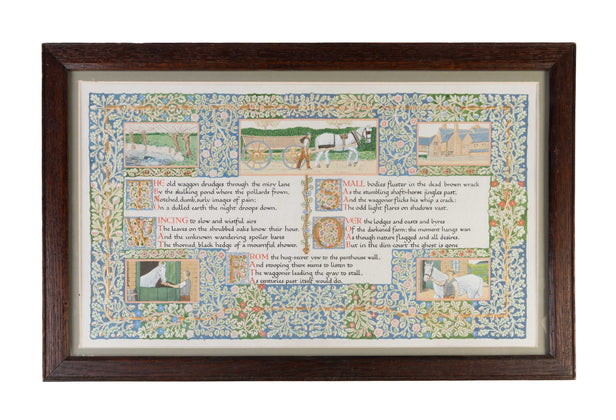 THE old waggon drudges through the miry lane
By the skulking pond where the pollards frown,
Notched, dumb, surly images of pain;
On a dulled earth the night droops down.
WINCING to slow and wistful airs
The leaves on the shrubbed oaks know their hour,
And the unknown wandering spoiler bares
The thorned black hedge of a mournful shower.
SMALL bodies fluster in the dead brown wrack
As the stumbling shaft-horse jingles past,
And the waggoner flicks his whip a crack:
The odd light flares on shadows vast.
OVER the lodges and oasts and byres
Of the darkened farm; the moment hangs wan
As though nature flagged and all desires.
But in the dim court the ghost is gone
FROM the hug-secret yew to the penthouse wall,
And stooping there seems to listen to
The waggoner leading the gray to stall,
As centuries past itself would do.